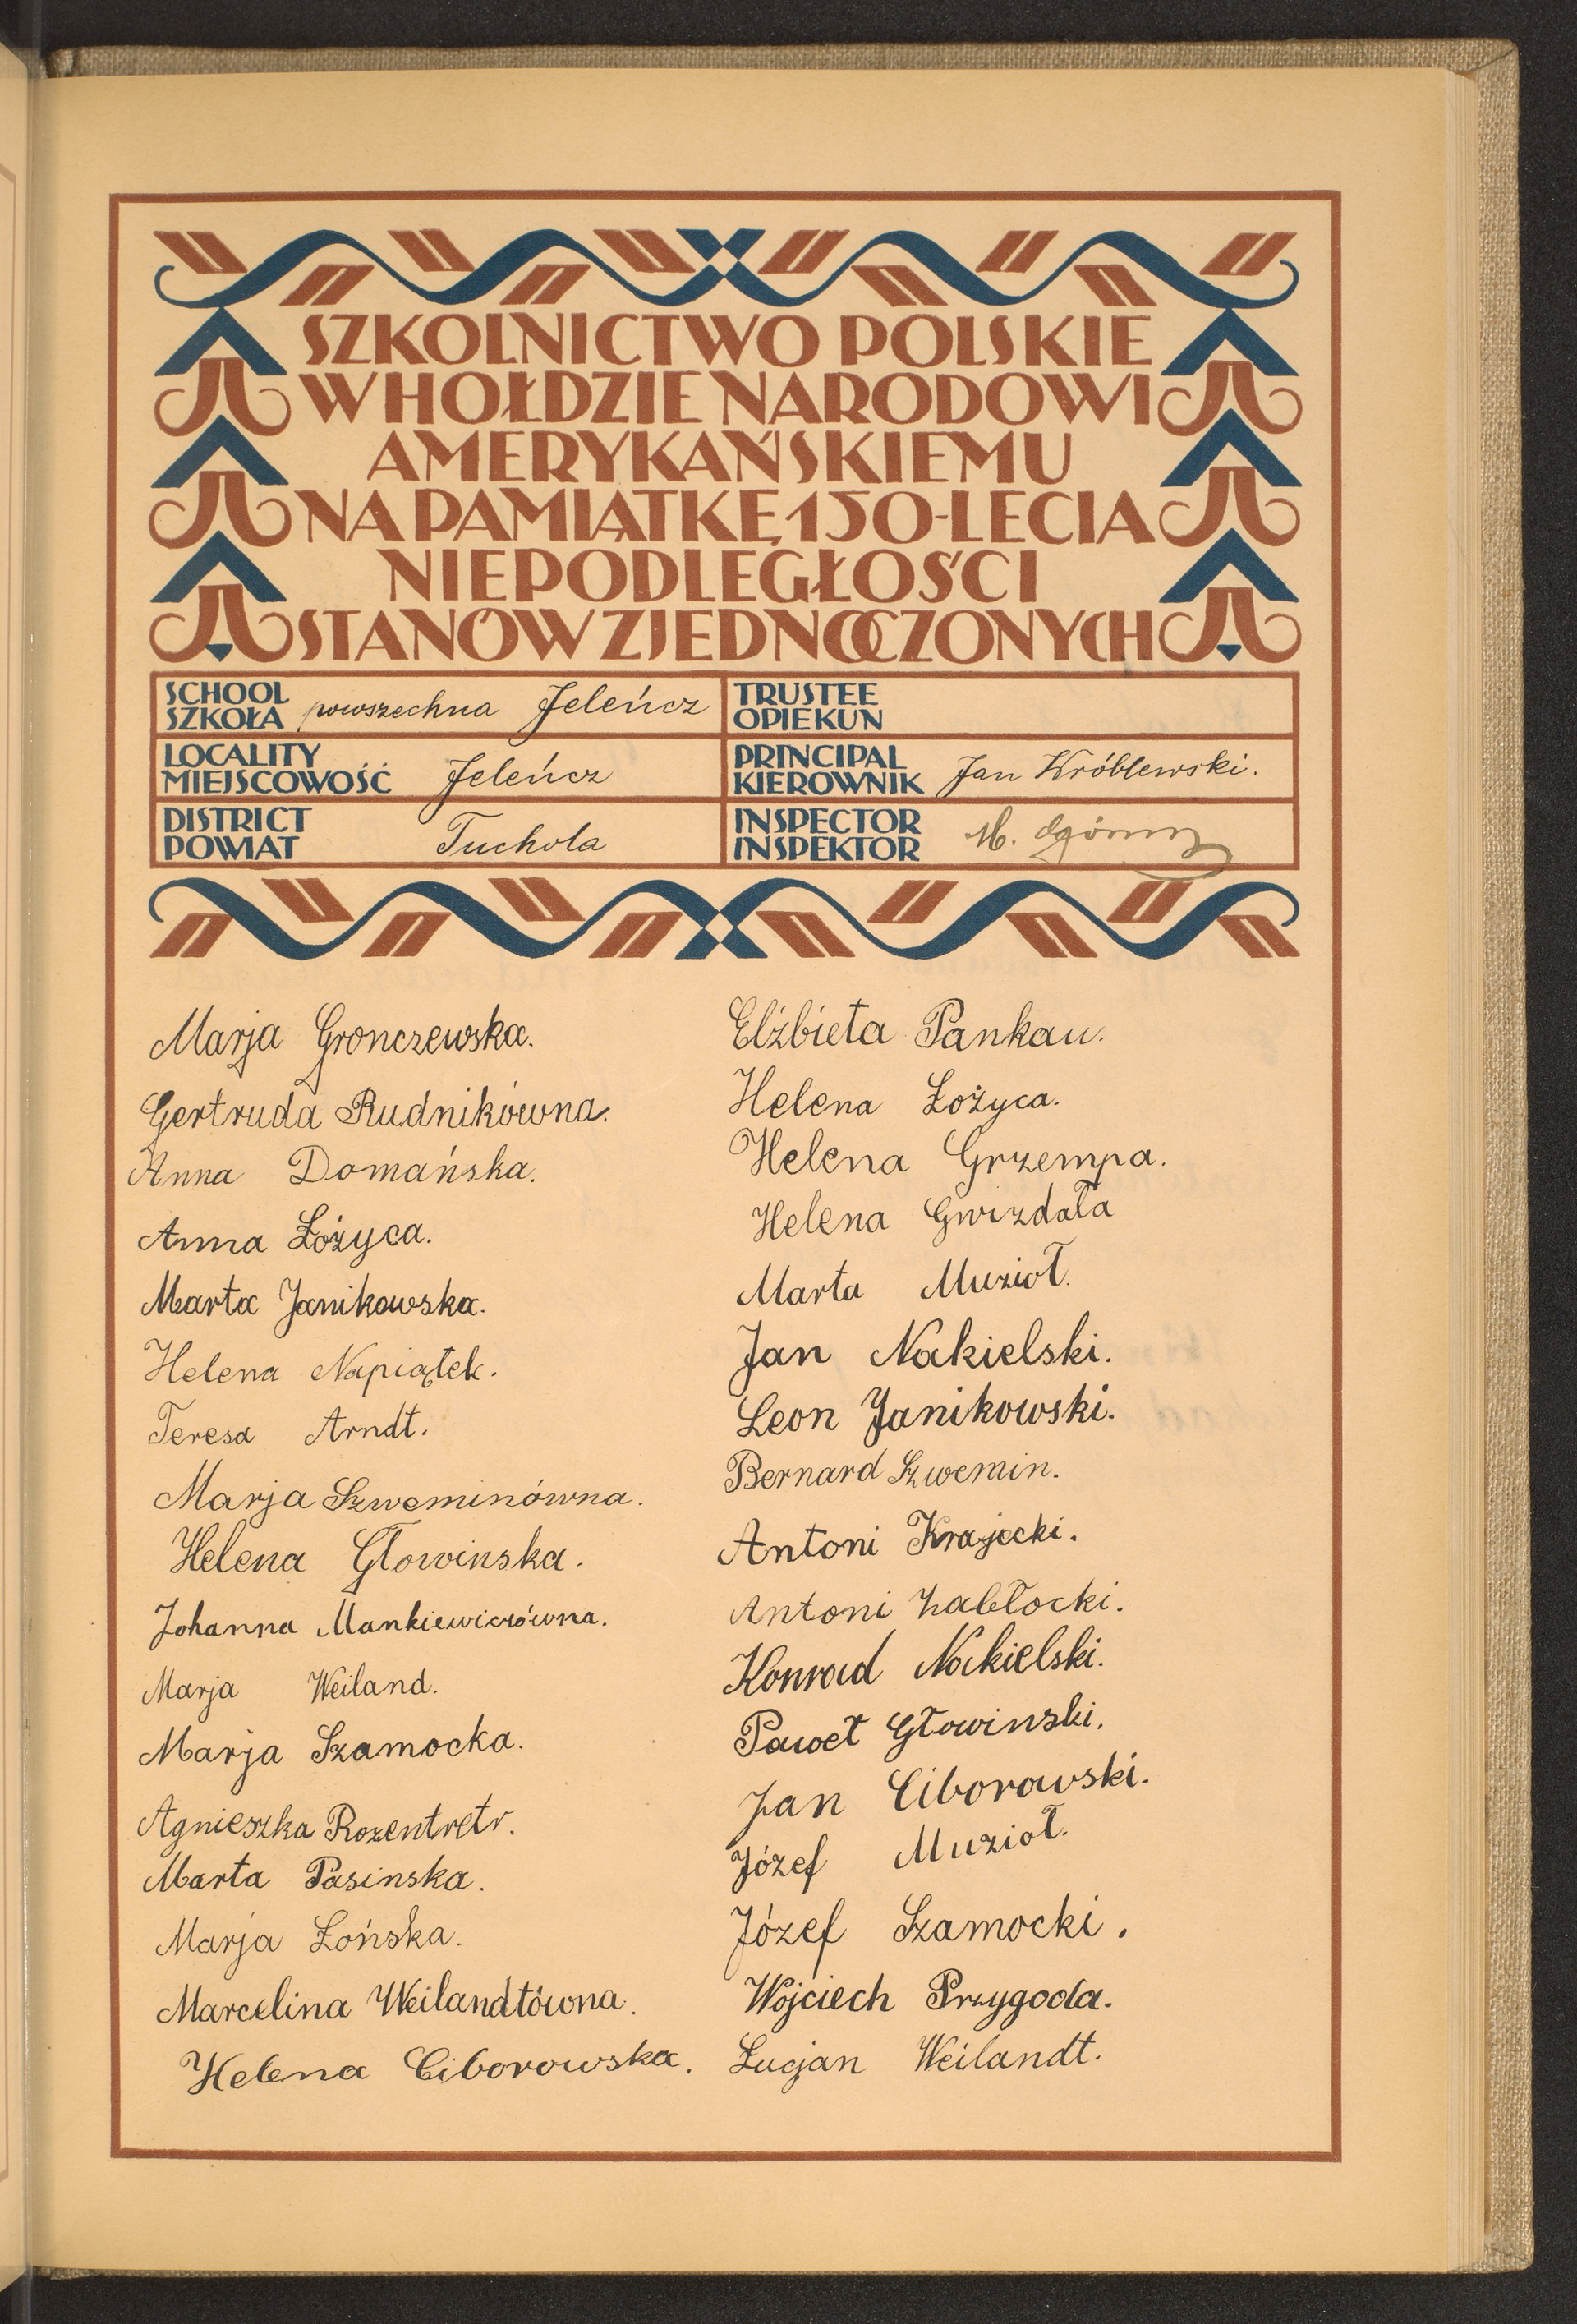 SZKOLNICTWO POLSKIE
W HOŁDZIE NARODOWI
AMERYKAŃSKIEMU
NA PAMIĄTKĘ 150-LECIA
NIEPODLEGŁOŚCI
STANÓW ZJEDNOCZONYCH
SCHOOL
SZKOŁA powszechna Jeleńcz
TRUSTEE
OPIEKUN
LOCALITY
MIEJSCOWOŚĆ Jeleńcz
PRINCIPAL
KIEROWNIK Jan Króblewski.
DISTRICT
POWIAT Tuchola
INSPECTOR
INSPEKTOR M.
Marja Gronczewska.
Gertruda Rudnikówna.
Anna Domańska.
Anna Łożyca.
Marta Janikowska.
Helena Napiątek.
Teresa Arndt.
Marja Szweminówna.
Helena Głowinska.
Johanna Mankiewiczówna.
Marja Weiland.
Marja Szamocka.
Agnieszka Rozentretr.
Marta Pasinska.
Marja Łońska.
Marcelina Weilandtówna.
Helena Ciborowska.
Elżbieta Pankau.
Helena Łożyca.
Helena Grzempa.
Helena Gwizdała
Marta Muzioł.
Jan Nakielski.
Leon Janikowski.
Bernard Szwemin.
Antoni Krajecki.
Antoni Zabłocki.
Konrad Nakielski.
Paweł Głowinski.
Jan Ciborowski.
Józef Muzioł.
Józef Szamocki.
Wojciech Przygoda.
Lucjan Weilandt.